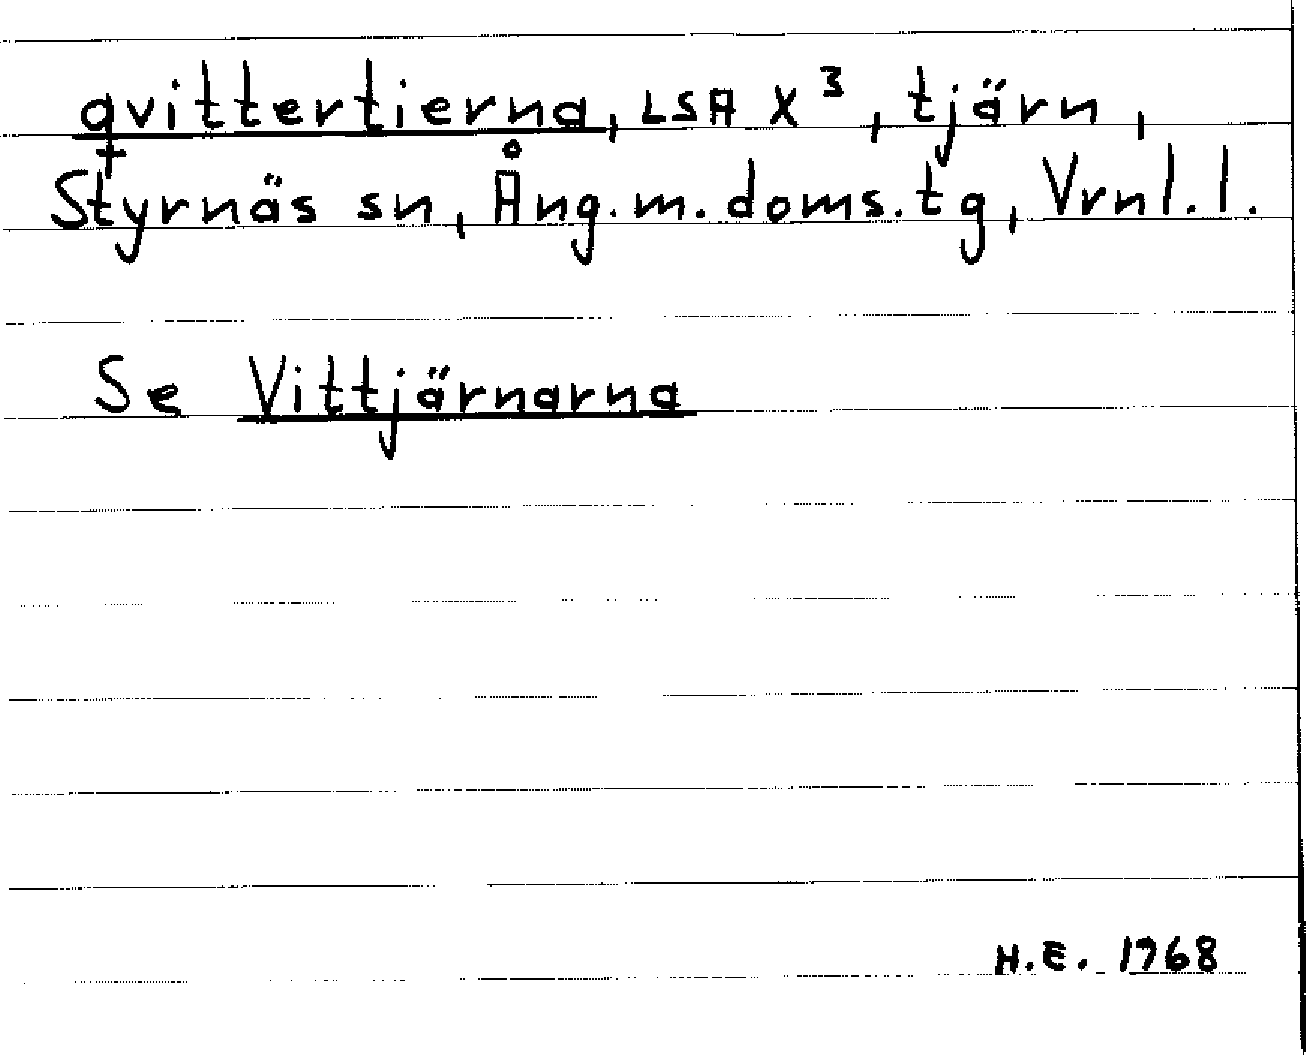 qvittertierna, LSA X³, tjärn,
Styrnäs sn, Ång.m.doms.tg, Vrnl.l.
Se Vittjärnarna
H.E. 1968